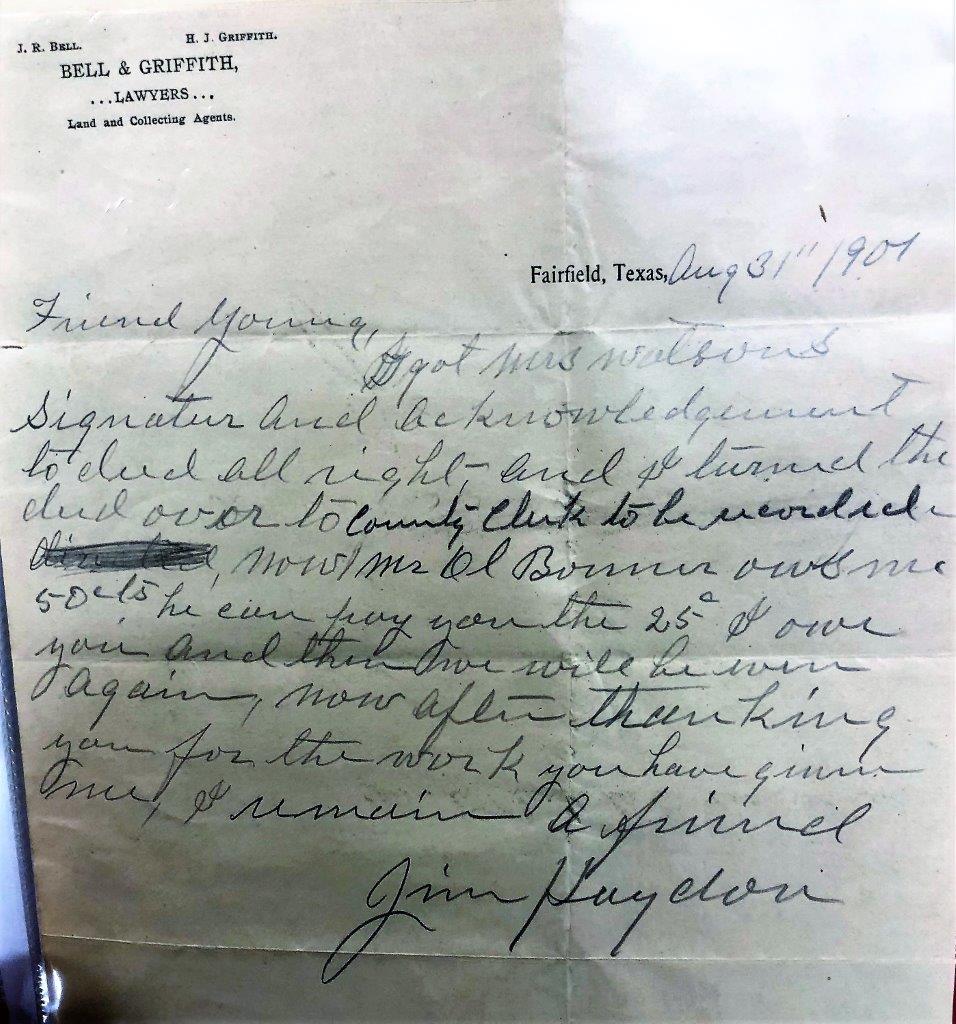 J. R. BELL. H. J. GRIFFITH.
BELL & GRIFFITH,
...LAWYERS...
Land and Collecting Agents.
Fairfield, Texas, Aug 31" 1901
Friend Young,
I got Mrs Watsons
Signatur and acknowledgement
to deed all right, and I turned the
deed over to County Clerk to be recorded
, Now Mr Ol Bonner ows me
50 cts he can pay you the 25c I owe
you and then we will be even
again, now after thanking
you for the work you have given
me, I remain a friend
Jim Haydon